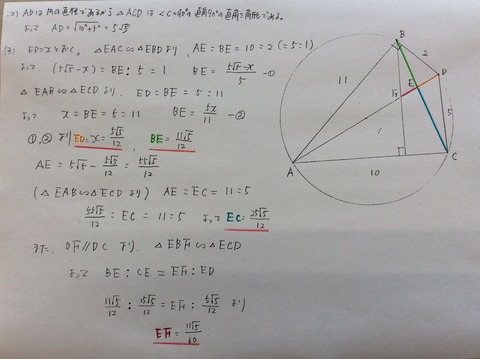 (2) ADは円の直径であるから △ACDは ∠C=90°の直角三角形である。
よって AD = √10²+5² = 5√5
(3) ED=xとおく。 △EAC∽△EBDより、AE:BE=10:2 (=5:1)
よって (5√5-x):BE=5:1 BE=5√5-x/5 -①
△EAB∽△ECDより、ED:BE=5:11
よって x:BE=5:11 BE=11x/5 -②
①,②より ED=x=5√5/12 BE=11√5/12
AE=5√5-5√5/12=55√5/12
(△EAB∽△ECDより) AE:EC=11:5
55√5/12:EC=11:5 よって EC=25√5/12
また、BF//DCより、△EBF∽△ECD
よって BE:CE=EF:ED
11√5/12:25√5/12=EF:5√5/12 より
EF=11√5/60
B
2
D
11
E
F
5
A
10
C